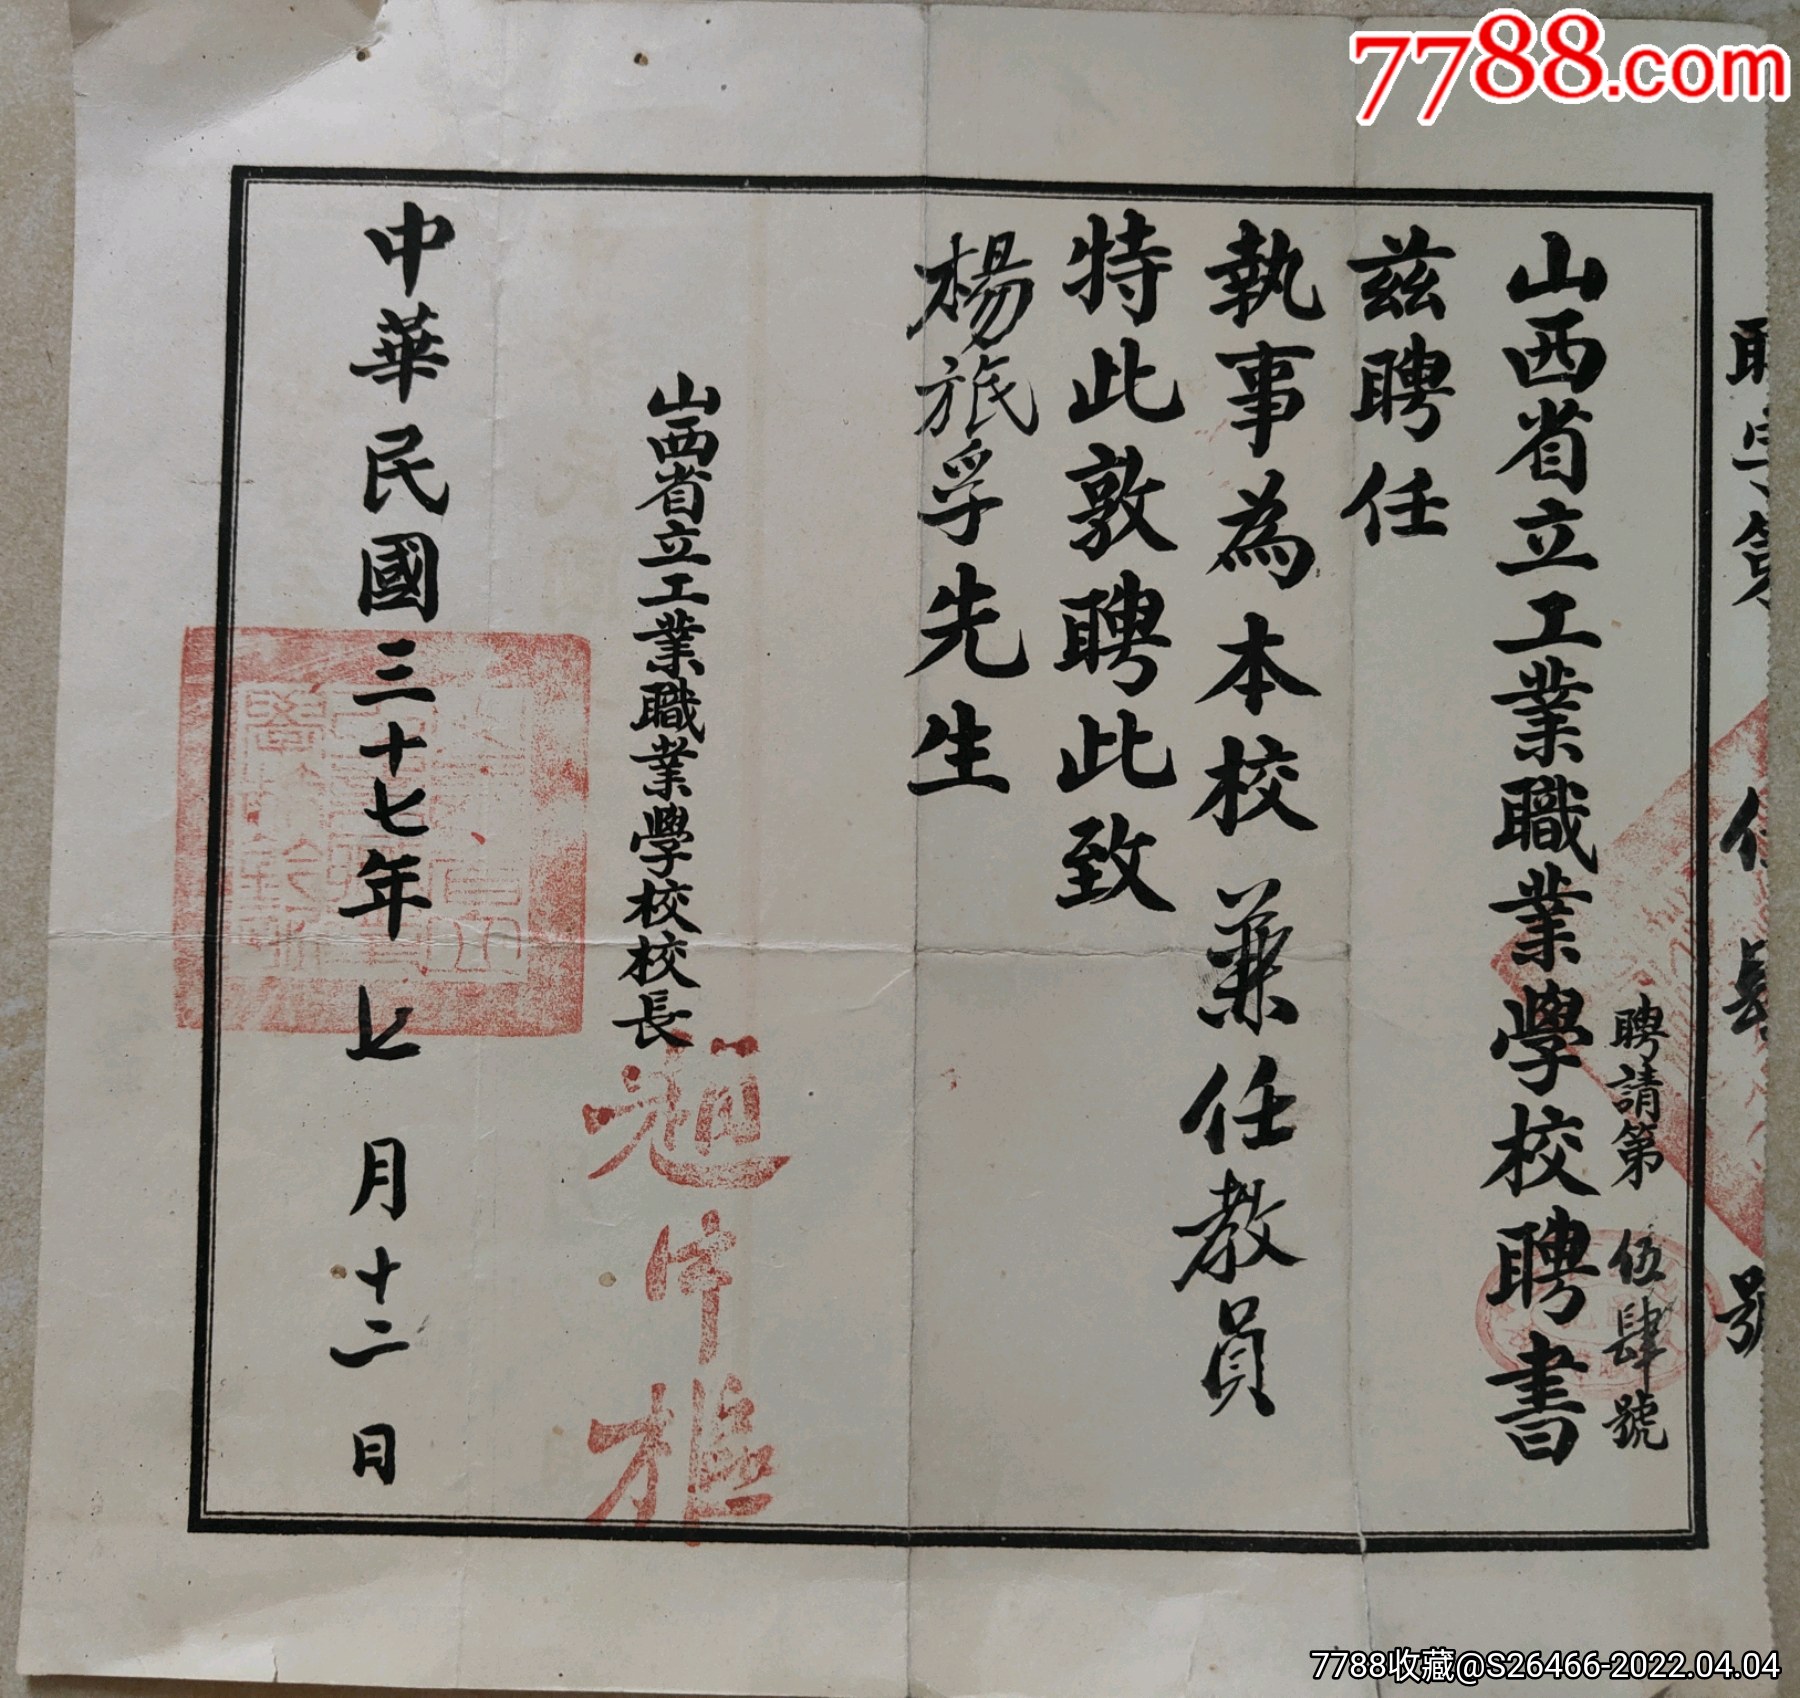 7788.com
聘字第 伍肆號
聘請第 伍肆號
山西省立工業職業學校聘書
茲聘任
執事為本校兼任教員
特此敦聘此致
楊旂孚先生
山西省立工業職業學校校長
中華民國三十七年七月十二日
7788收藏@S26466-2022.04.04